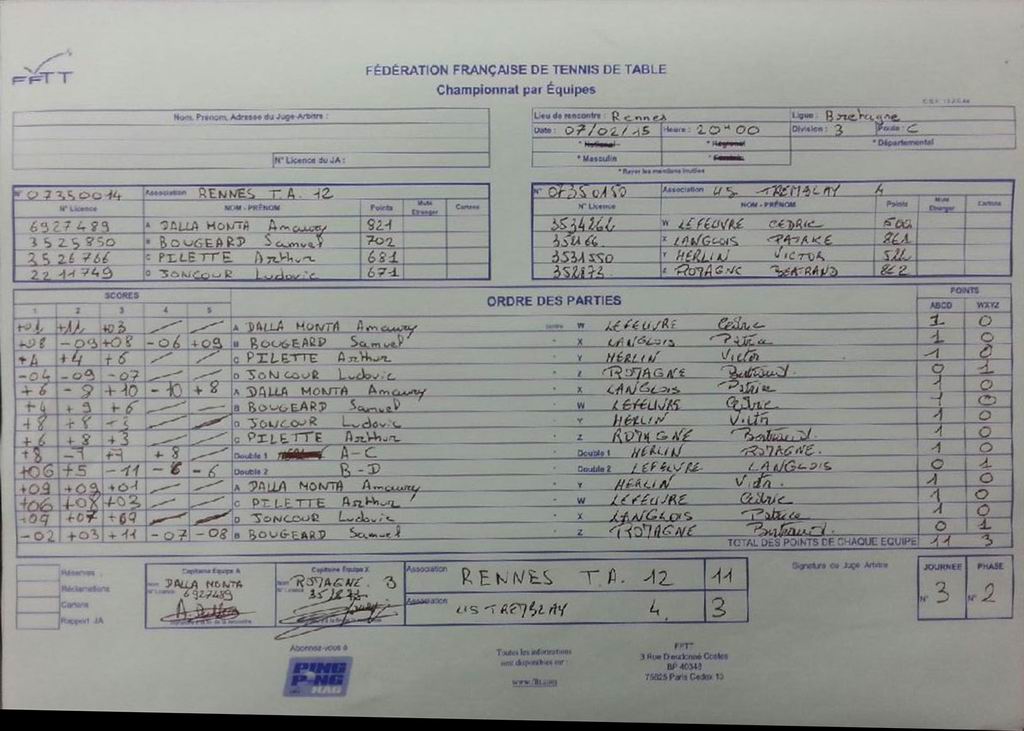 FFTT
FÉDÉRATION FRANÇAISE DE TENNIS DE TABLE
Championnat par Équipes
Nom, Prénom, Adresse du Juge-Arbitre :
N° Licence du JA :
Lieu de rencontre : Rennes Ligue : Bretagne
Date : 07/02/15 Heure : 20H00 Division : 3 Poule : C
* National * Régional * Départemental
* Masculin * Féminin
* Rayer les mentions inutiles
N° 07350014 Association RENNES T.A. 12
N° Licence NOM - PRÉNOM Points Muté Etranger Cartons
6927489 A DALLA MONTA Amaury 821
3525850 B BOUGEARD Samuel 702
3526766 C PILETTE Arthur 681
2211749 D JONCOUR Ludovic 671
N° 07350150 Association US TREMBLAY 4
N° Licence NOM - PRÉNOM Points Muté Etranger Cartons
3534266 W LEFEUVRE CEDRIC 500
352166 X LANGLOIS 861
3531550 Y HERLIN VICTOR 522
352873 Z ROMAGNE BERTRAND 862
SCORES ORDRE DES PARTIES POINTS
1 2 3 4 5 ABCD WXYZ
+01 +11 +03 A DALLA MONTA Amaury contre W LEFEUVRE Cédric 1 0
+08 -09 +08 -06 +09 B BOUGEARD Samuel X LANGLOIS Patrice 1 0
+4 +4 +6 C PILETTE Arthur Y HERLIN Victor 1 0
-04 -09 -07 D JONCOUR Ludovic Z ROMAGNE Bertrand 0 1
+6 -8 +10 -10 +8 A DALLA MONTA Amaury X LANGLOIS Patrice 1 0
+4 +9 +6 B BOUGEARD Samuel W LEFEUVRE Cédric 1 0
+8 +8 +5 D JONCOUR Ludovic Y HERLIN Victor 1 0
+6 +8 +3 C PILETTE Arthur Z ROMAGNE Bertrand 1 0
+8 -7 +7 +8 Double 1 A-C Double 1 HERLIN ROMAGNE 1 0
+06 +5 -11 -6 -6 Double 2 B-D Double 2 LEFEUVRE LANGLOIS 0 1
+09 +09 +01 A DALLA MONTA Amaury Y HERLIN Victor 1 0
+06 +08 +03 C PILETTE Arthur W LEFEUVRE Cédric 1 0
+09 +07 +09 D JONCOUR Ludovic X LANGLOIS Patrice 1 0
-02 +03 +11 -07 -08 B BOUGEARD Samuel Z ROMAGNE Bertrand 0 1
TOTAL DES POINTS DE CHAQUE EQUIPE 11 3
Réserves
Réclamations
Cartons
Rapport JA
Capitaine Equipe A
Nom DALLA MONTA
N° Licence 6927489
Capitaine Equipe X
Nom ROMAGNE B
352873
Association RENNES T.A. 12 11
Association US TREMBLAY 4 3
Signature du Juge Arbitre
JOURNEE PHASE
N° 3 N° 2
Abonnez-vous à
PING PONG MAG
Toutes les informations
sont disponibles sur :
www.fftt.com
FFTT
3 Rue Dieudonné Costes
BP 40348
75625 Paris Cedex 13